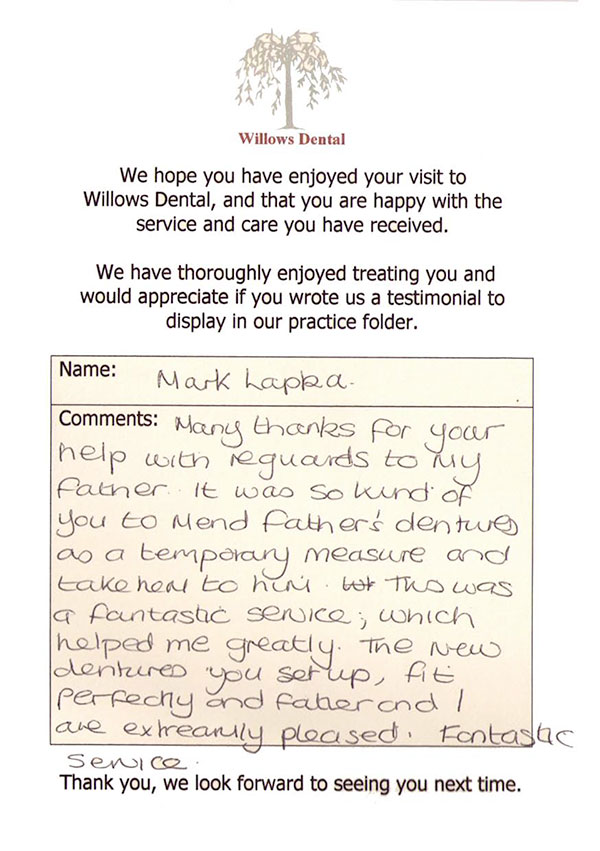 Willows Dental
We hope you have enjoyed your visit to
Willows Dental, and that you are happy with the
service and care you have received.
We have thoroughly enjoyed treating you and
would appreciate if you wrote us a testimonial to
display in our practice folder.
Name: Mark Lapka.
Comments: Many thanks for your
help with reguards to my
father. It was so kind of
you to mend father's dentures
as a temporary measure and
take them to him. This was
a fantastic service, which
helped me greatly. The new
dentures you set up, fit
perfectly and father and I
are extreamly pleased. Fantastic
service.
Thank you, we look forward to seeing you next time.